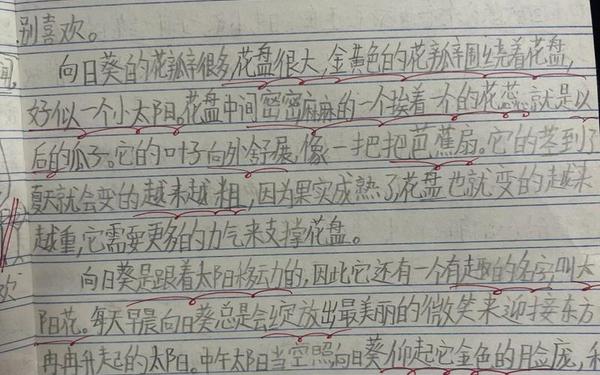 别喜欢。
向日葵的花瓣很多,花盘很大,金黄色的花瓣围绕着花盘,
好似一个小太阳。花盘中间密密麻麻的一个挨着一个的花蕊就是以
后的瓜子。它的叶子向外舒展,像一把把芭蕉扇。它的茎到了
夏天就会变的越来越粗,因为果实成熟了花盘也就变的越来
越重,它需要更多的力气来支撑花盘。
向日葵是跟着太阳移动的,因此它还有一个有趣的名字叫太
阳花。每天早晨向日葵总是会绽放出最美丽的微笑来迎接东方
冉冉升起的太阳。中午太阳当空照向日葵仰起它金色的脸庞,